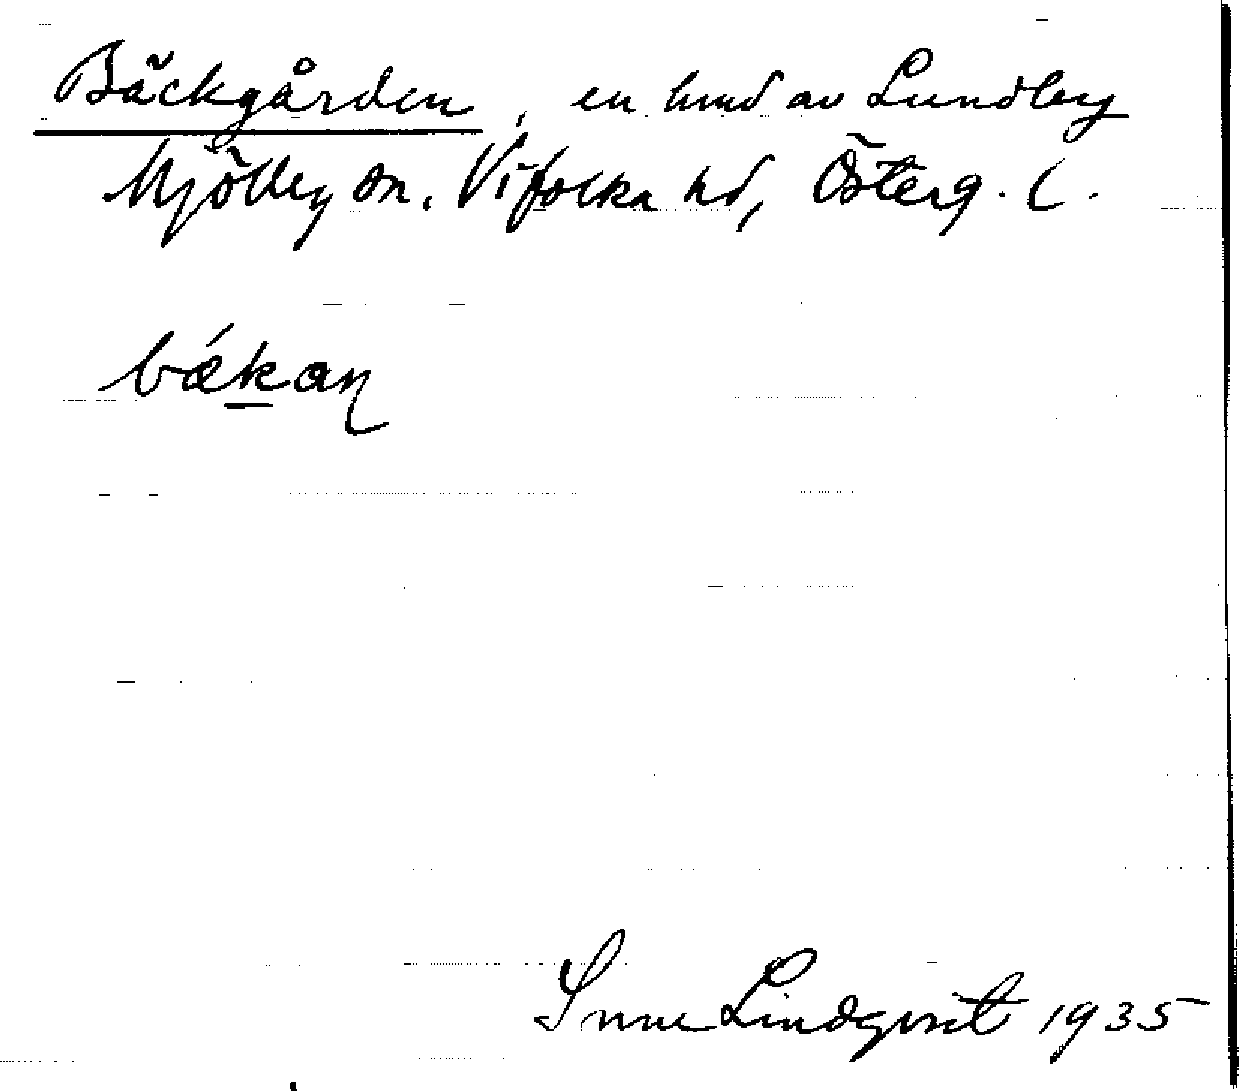 Bäckgården, en hmd av Lundby
Mjölby sn. Vifolka hd, Österg. L.
bǽkaɳ
Sune Lindqvist 1935